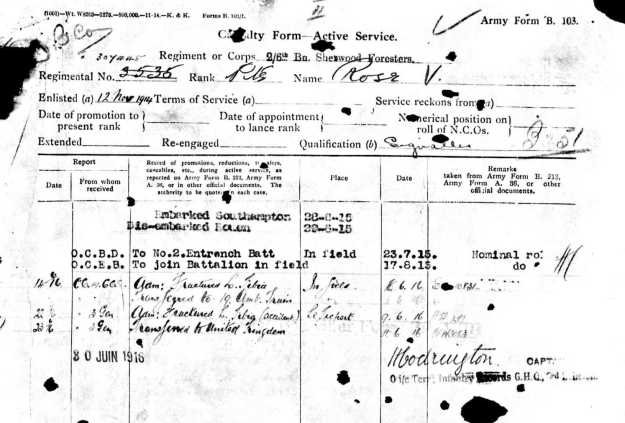 Forms B. 103/1.
Army Form B. 103.
B Co
Casualty Form—Active Service.
Regiment or Corps 2/6th Bn. Sherwood Foresters.
Regimental No. 3536 Rank Pte Name Rose V.
Enlisted (a) 12 Nov 1914 Terms of Service (a) Service reckons from (a)
Date of promotion to present rank Date of appointment to lance rank Numerical position on roll of N.C.Os.
Extended Re-engaged Qualification (b) Signaller
Report
Date From whom received
Record of promotions, reductions, transfers, casualties, etc., during active service, as reported on Army Form B. 213, Army Form A. 36, or in other official documents. The authority to be quoted in each case.
Place
Date
Remarks taken from Army Form B. 213, Army Form A. 36, or other official documents.
Embarked Southampton 28-6-15
Dis-embarked Rouen 29-6-15
O.C.B.D. To No.2.Entrench Batt In field 23.7.15. Nominal rol
O.C.E.B. To join Battalion in field 17-8.15. do
Adm: Fractured Tibia
Transferred to 19 Amb. Train
Adm: Fractured Tibia (accident) Le Treport 9.6.16
Transferred to United Kingdom
30 JUN 1916
CAPT.
Infantry Records G.H.Q.